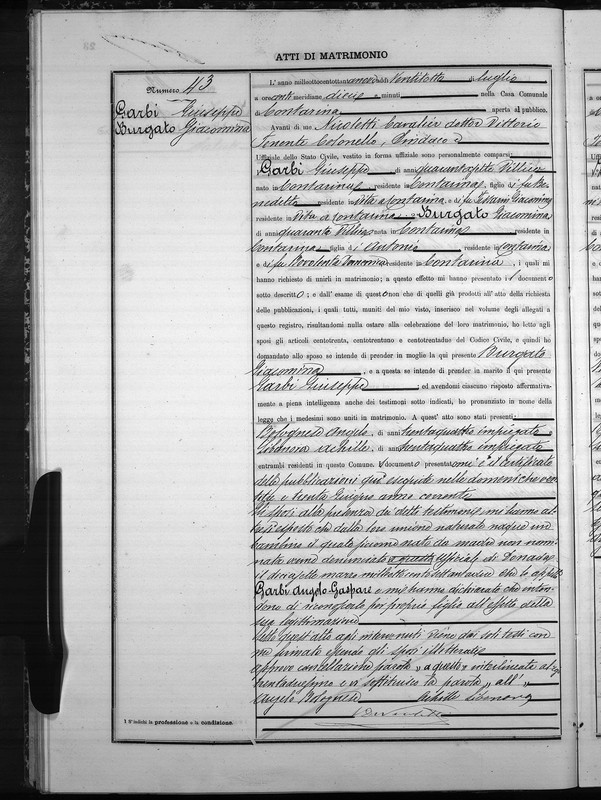 ATTI DI MATRIMONIO
Numero 43
Garbi Giuseppe
Burgato Giacomina
L'anno milleottocentottantanove, addì Ventilotto di luglio
a ore anti meridiane dieci e minuti nella Casa Comunale
di Contarina aperta al pubblico.
Avanti di me Nicoletti Cavalier dottor Vittorio
Tenente Colonello, Sindaco
Uffiziale dello Stato Civile, vestito in forma uffiziale sono personalmente comparsi:
Garbi Giuseppe, di anni quarantasette Villico
nato in Contarina, residente in Contarina, figlio di fu Be-
nedetto residente in vita a Contarina, e di fu Giacomina
residente in vita a Contarina Burgato Giacomina
di anni quaranta nata in Contarina residente in
Contarina figlia di Antonio residente in Contarina
e di fu residente in Contarina, i quali mi
hanno richiesto di unirli in matrimonio; a questo effetto mi hanno presentato il documento
sotto descritto; e dall'esame di questo non che di quelli già prodotti all'atto della richiesta
delle pubblicazioni, i quali tutti, muniti del mio visto, inserisco nel volume degli allegati a
questo registro, risultandomi nulla ostare alla celebrazione del loro matrimonio, ho letto agli
sposi gli articoli centotrenta, centotrentuno e centotrentadue del Codice Civile, e quindi ho
domandato allo sposo se intende di prender in moglie la qui presente Burgato
Giacomina, e a questa se intende di prender in marito il qui presente
Garbi Giuseppe; ed avendomi ciascuno risposto affermativa-
mente a piena intelligenza anche dei testimoni sotto indicati, ho pronunziato in nome della
legge che i medesimi sono uniti in matrimonio. A quest'atto sono stati presenti
Bolognese Angelo, di anni trentaquattro impiegato e
Achille, di anni trentaquattro impiegato
entrambi residenti in questo Comune. Il documento presentatomi è il certificato
delle pubblicazioni qui eseguite nelle domeniche ven-
e trenta Giugno anno corrente
Gli sposi alla presenza dei detti testimoni mi hanno al-
tresì esposto che dalla loro unione naturale nacque un
bambino il quale siccome nato da madre non nomi-
nata venne denunciato a questo Ufficiale di
il diecisette marzo milleottocentottantasei che lo appellò
Garbi Angelo Gaspare e mi hanno dichiarato che inten-
dono di riconoscerlo per proprio figlio all'effetto della
sua legittimazione
Letto quest'atto agli intervenuti viene dai soli testi con
me firmato essendo gli sposi illetterati
approvo cancellazione parola „ a questo „ interlineata al
trentaduesimo e vi sostituisco la parola „ all' „
Angelo Bolognese Achille
1 S'indichi la professione o la condizione.